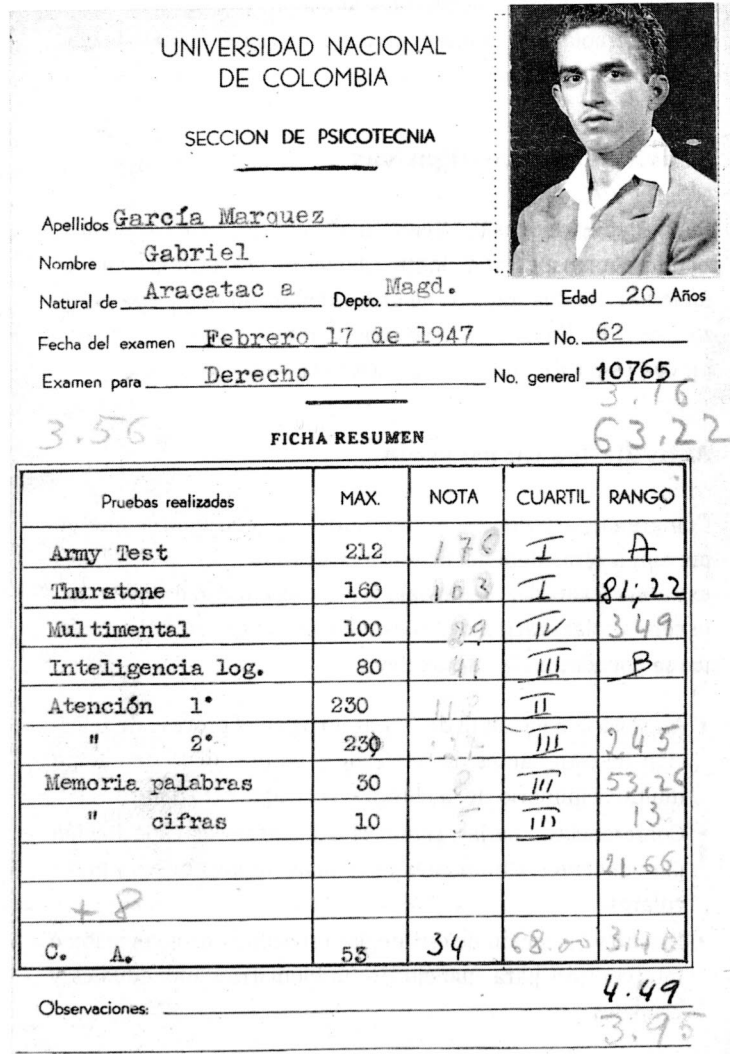 UNIVERSIDAD NACIONAL
DE COLOMBIA
SECCION DE PSICOTECNIA
Apellidos García Marquez
Nombre Gabriel
Natural de Aracatac a Depto. Magd. Edad 20 Años
Fecha del examen Febrero 17 de 1947 No. 62
Examen para Derecho No. general 10765
3.16
3.56 FICHA RESUMEN 63.22
Pruebas realizadas MAX. NOTA CUARTIL RANGO
Army Test 212 170 I A
Thurstone 160 103 I 81,22
Multimental 100 IV 349
Inteligencia log. 80 41 III B
Atención 1° 230 II
" 2° 230 III 245
Memoria palabras 30 III 53,26
" cifras 10 5 III 13
21.66
+8
C. A. 53 34 68.00 3.40
4.49
Observaciones:
3.95